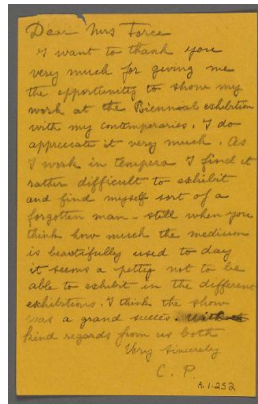 Dear Mrs Force
I want to thank you
very much for giving me
the opportunity to show my
work at the Biennial exhibition
with my contemporaries. I do
appreciate it very much. As
I work in tempera I find it
rather difficult to exhibit
and find myself sort of a
forgotten man - still when you
think how much the medium
is beautifully used to day
it seems a pitty not to be
able to exhibit in the different
exhibitions. I think the show
was a grand success. With
kind regards from us both
Very Sincerely
C. P.
8.1.252